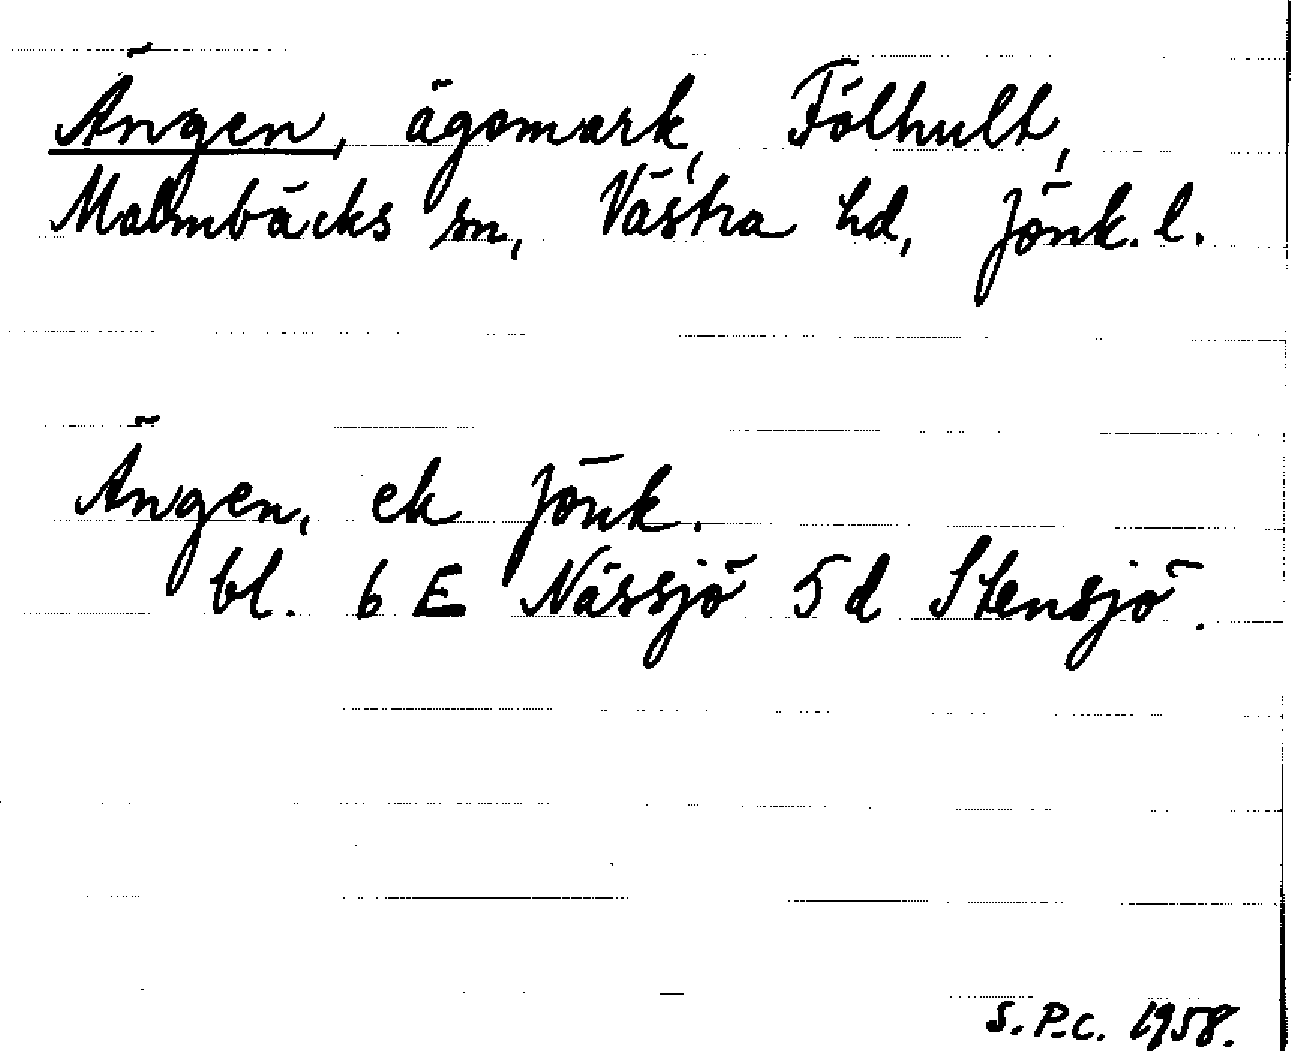 Ängen, ägomark, Fölhult,
Malmbäcks sn, Västra hd, Jönk. l.
Ängen, ek Jönk.
bl. 6 E Nässjö 5 d Stensjö.
S.P.C. 1958.